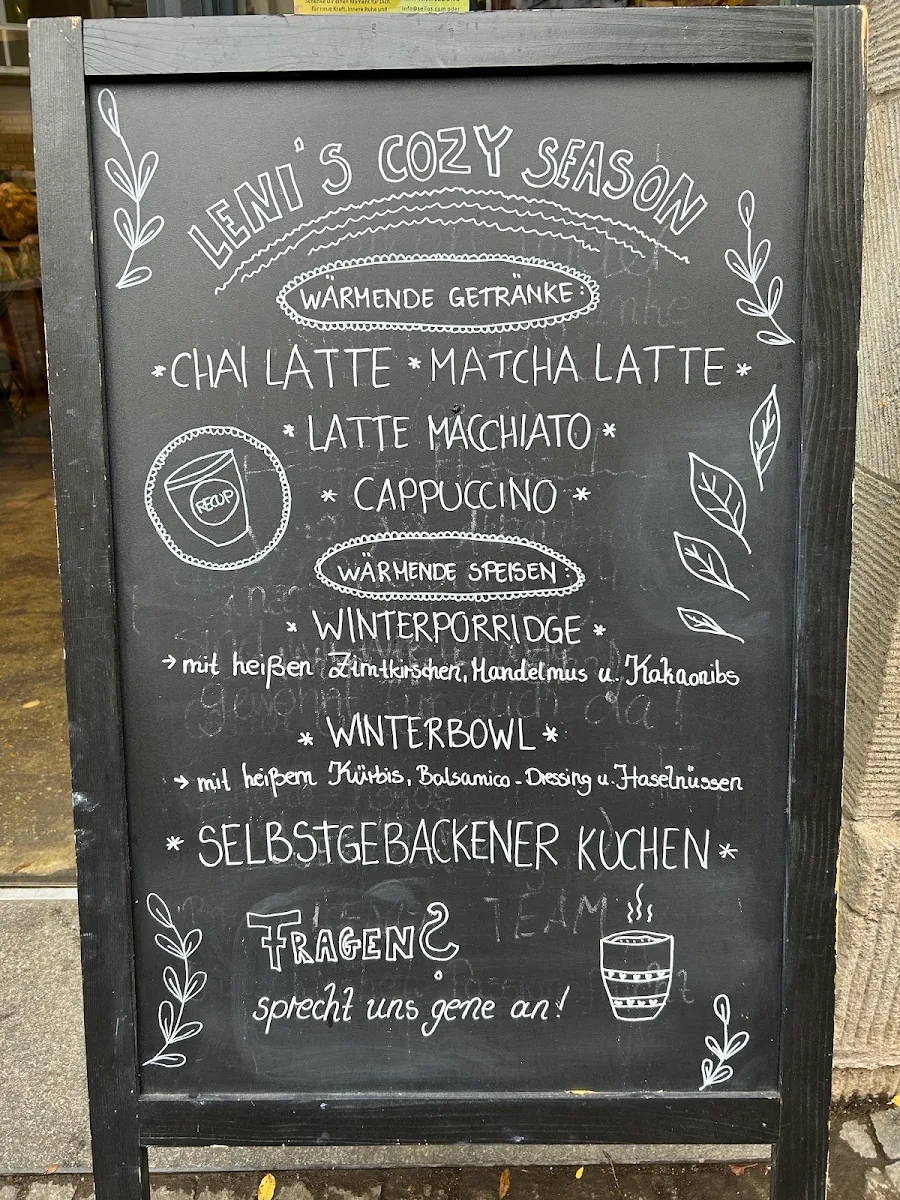 für neue Kraft, innere Ruhe und
LENI'S COZY SEASON
WÄRMENDE GETRÄNKE:
*CHAI LATTE *MATCHA LATTE *
* LATTE MACCHIATO *
* CAPPUCCINO *
RECUP
WÄRMENDE SPEISEN:
* WINTERPORRIDGE *
→mit heißen Zimtkirschen, Mandelmus u. Kakaonibs
* WINTERBOWL *
→ mit heißem Kürbis, Balsamico-Dressing u. Haselnüssen
* SELBSTGEBACKENER KUCHEN *
TEAM
FRAGEN?
sprecht uns gene an!